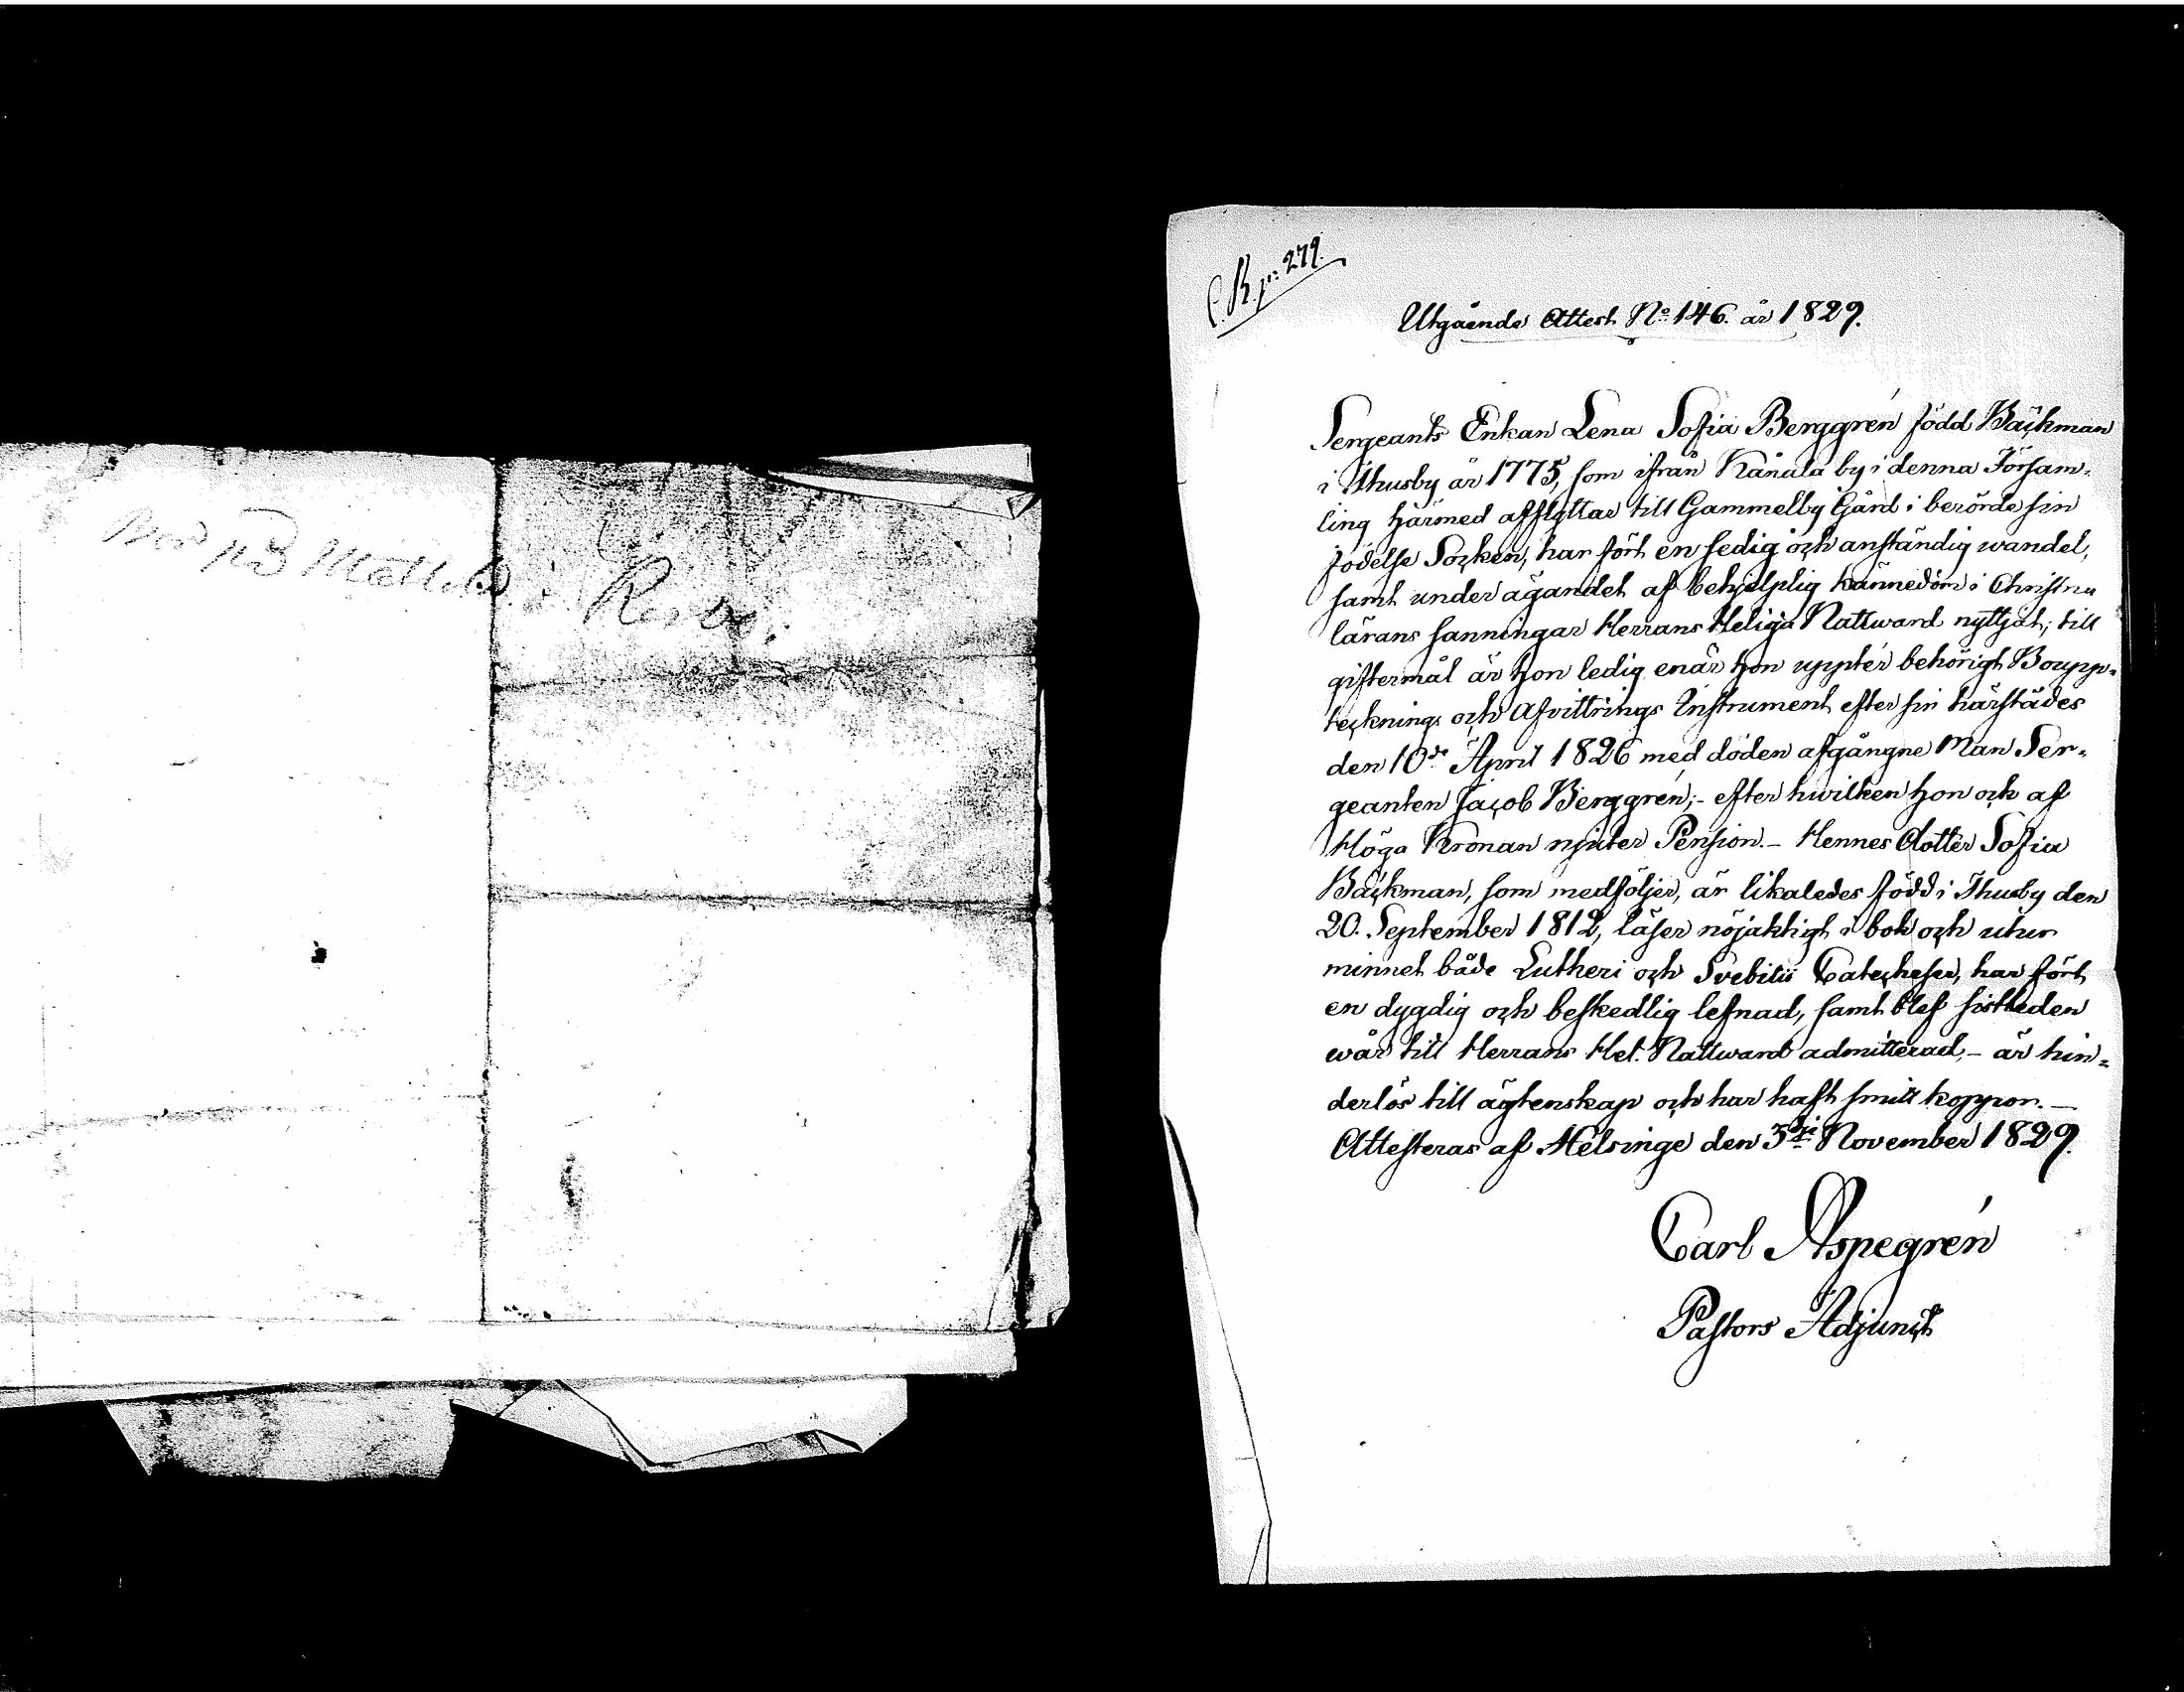 C.B. p: 279.
Utgående Attest No 146. år 1829.
Sergeants Enkan Lena Sofia Berggrén född Bäckman
i Thusby år 1775, som ifrån Kånala by i denna Försam-
ling härmed afflyttar till Gammelby Gård i berörde sin
födelse Socken, har fört en sedig och anständig wandel,
samt under ägandet af behjelplig kännedom i Christna
lärans sanningar Herrans Heliga Nattward nyttjat; till
giftermål är hon ledig enär hon uppter behörigt Boupp-
tecknings och Afvittrings Instrument efter sin härstädes
den 10de April 1826 med döden afgångne Man Ser-
geanten Jacob Berggrén;- efter hwilken hon och af
Höga Kronan njuter Pension.- Hennes dotter Sofia
Bäckman, som medföljer, är likaledes född i Thusby den
20. September 1812, läser nöjaktigt i bok och utur
minnet både Lutheri och Svebilii Catecheser, har fört
en dygdig och beskedlig lefnad, samt blef sistleden
wår till Herrans Hel. Nattward admitterad,- är hin-
derlös till ägtenskap och har haft smitt koppor.-
Attesteras af Helsinge den 3dji November 1829.
Carl Aspegrén
Pastors Adjunct